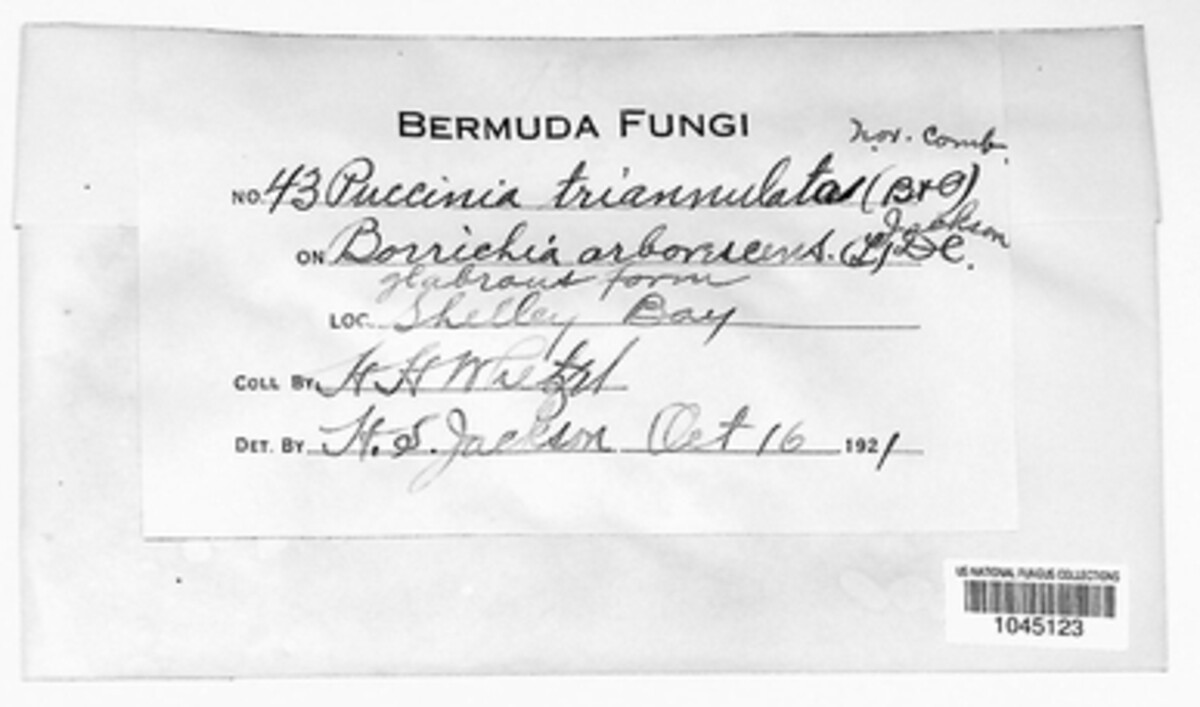 BERMUDA FUNGI
nov. comb.
NO. 43 Puccinia triannulata (B+G)
Jackson
ON Borrichia arborescens. (L) DC.
glabrous form
LOC. Shelley Bay
COLL BY. H H Whetzel
DET. BY H. S. Jackson Oct 16 1921
US NATIONAL FUNGUS COLLECTIONS
1045123